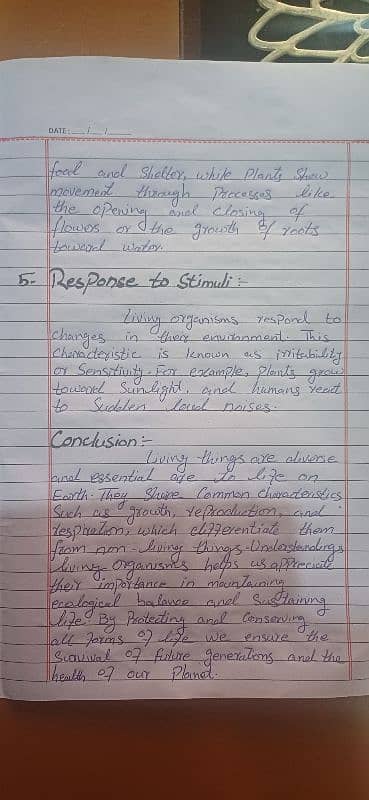 DATE: __/__/____
food and Shelter, while Plants Show
movement through Processes like
the opening and closing of
flowers or the growth of roots
toward water.
5- Response to Stimuli :-
Living organisms respond to
changes in their environment. This
characteristic is known as irritability
or Sensitivity. For example, Plants grow
toward Sunlight, and humans react
to Sudden loud noises.
Conclusion :-
Living things are diverse
and essential to life on
Earth. They Share Common characteristics
Such as growth, reproduction, and
respiration, which differentiate them
from non-living things. Understandings
living organisms helps us appreciate
their importance in maintaining
ecological balance and Sustaining
life. By Protecting and Conserving
all forms of life we ensure the
Survival of future generations and the
health of our Planet.